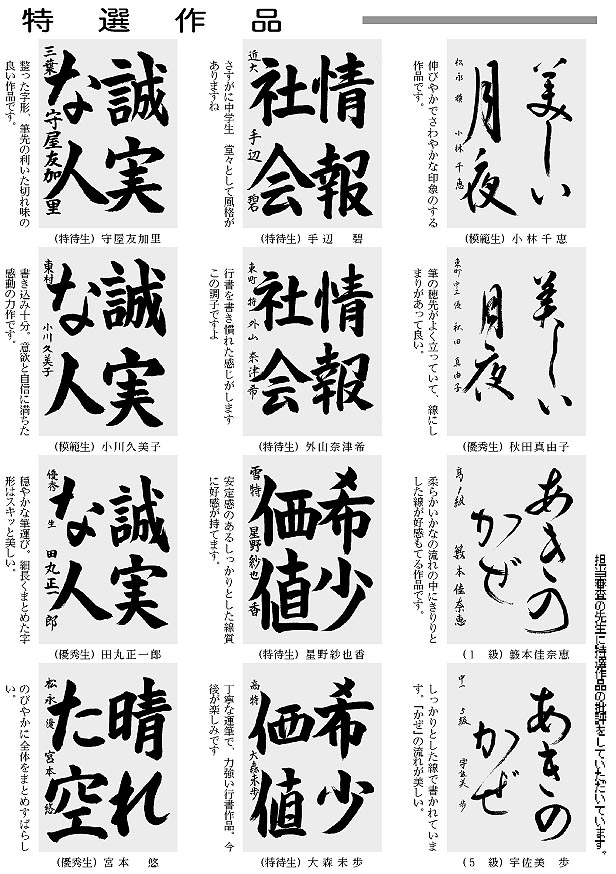 特選作品
担当審査の先生に特選作品の批評をしていただいています。
美しい
月夜
小林千恵
伸びやかでさわやかな印象のする
作品です。
(模範生)小林千恵
情報
社会
近大 手辺 碧
さすがに中学生 堂々として風格が
ありますね
(特待生)手辺 碧
誠実
な人
三葉 守屋友加里
整った字形、筆先の利いた切れ味の
良い作品です。
(特待生)守屋友加里
美しい
月夜
秋田真由子
筆の穂先がよく立っていて、線にし
まりがあって良い。
(優秀生)秋田真由子
情報
社会
東町 特 外山奈津希
行書を書き慣れた感じがします
この調子ですよ
(特待生)外山奈津希
誠実
な人
東村 小川久美子
書き込み十分。意欲と自信に満ちた
感動の力作です。
(模範生)小川久美子
あきの
かぜ
籔本佳奈恵
柔らかいかなの流れの中にきりりと
した線が好感もてる作品です。
(1級)籔本佳奈恵
希少
価値
雪特 星野紗也香
安定感のあるしっかりとした線質
に好感が持てます。
(特待生)星野紗也香
誠実
な人
優秀生 田丸正一郎
穏やかな筆運び。細長くまとめた字
形はスキッと美しい。
(優秀生)田丸正一郎
あきの
かぜ
中一 5級 宇佐美 歩
しっかりとした線で書かれていま
す。「かぜ」の流れが美しい。
(5級)宇佐美 歩
希少
価値
高特 大森未歩
丁寧な運筆で、力強い行書作品。今
後が楽しみです
(特待生)大森未歩
晴れ
た空
松永 優 宮本 悠
のびやかに全体をまとめすばらし
い。
(優秀生)宮本 悠